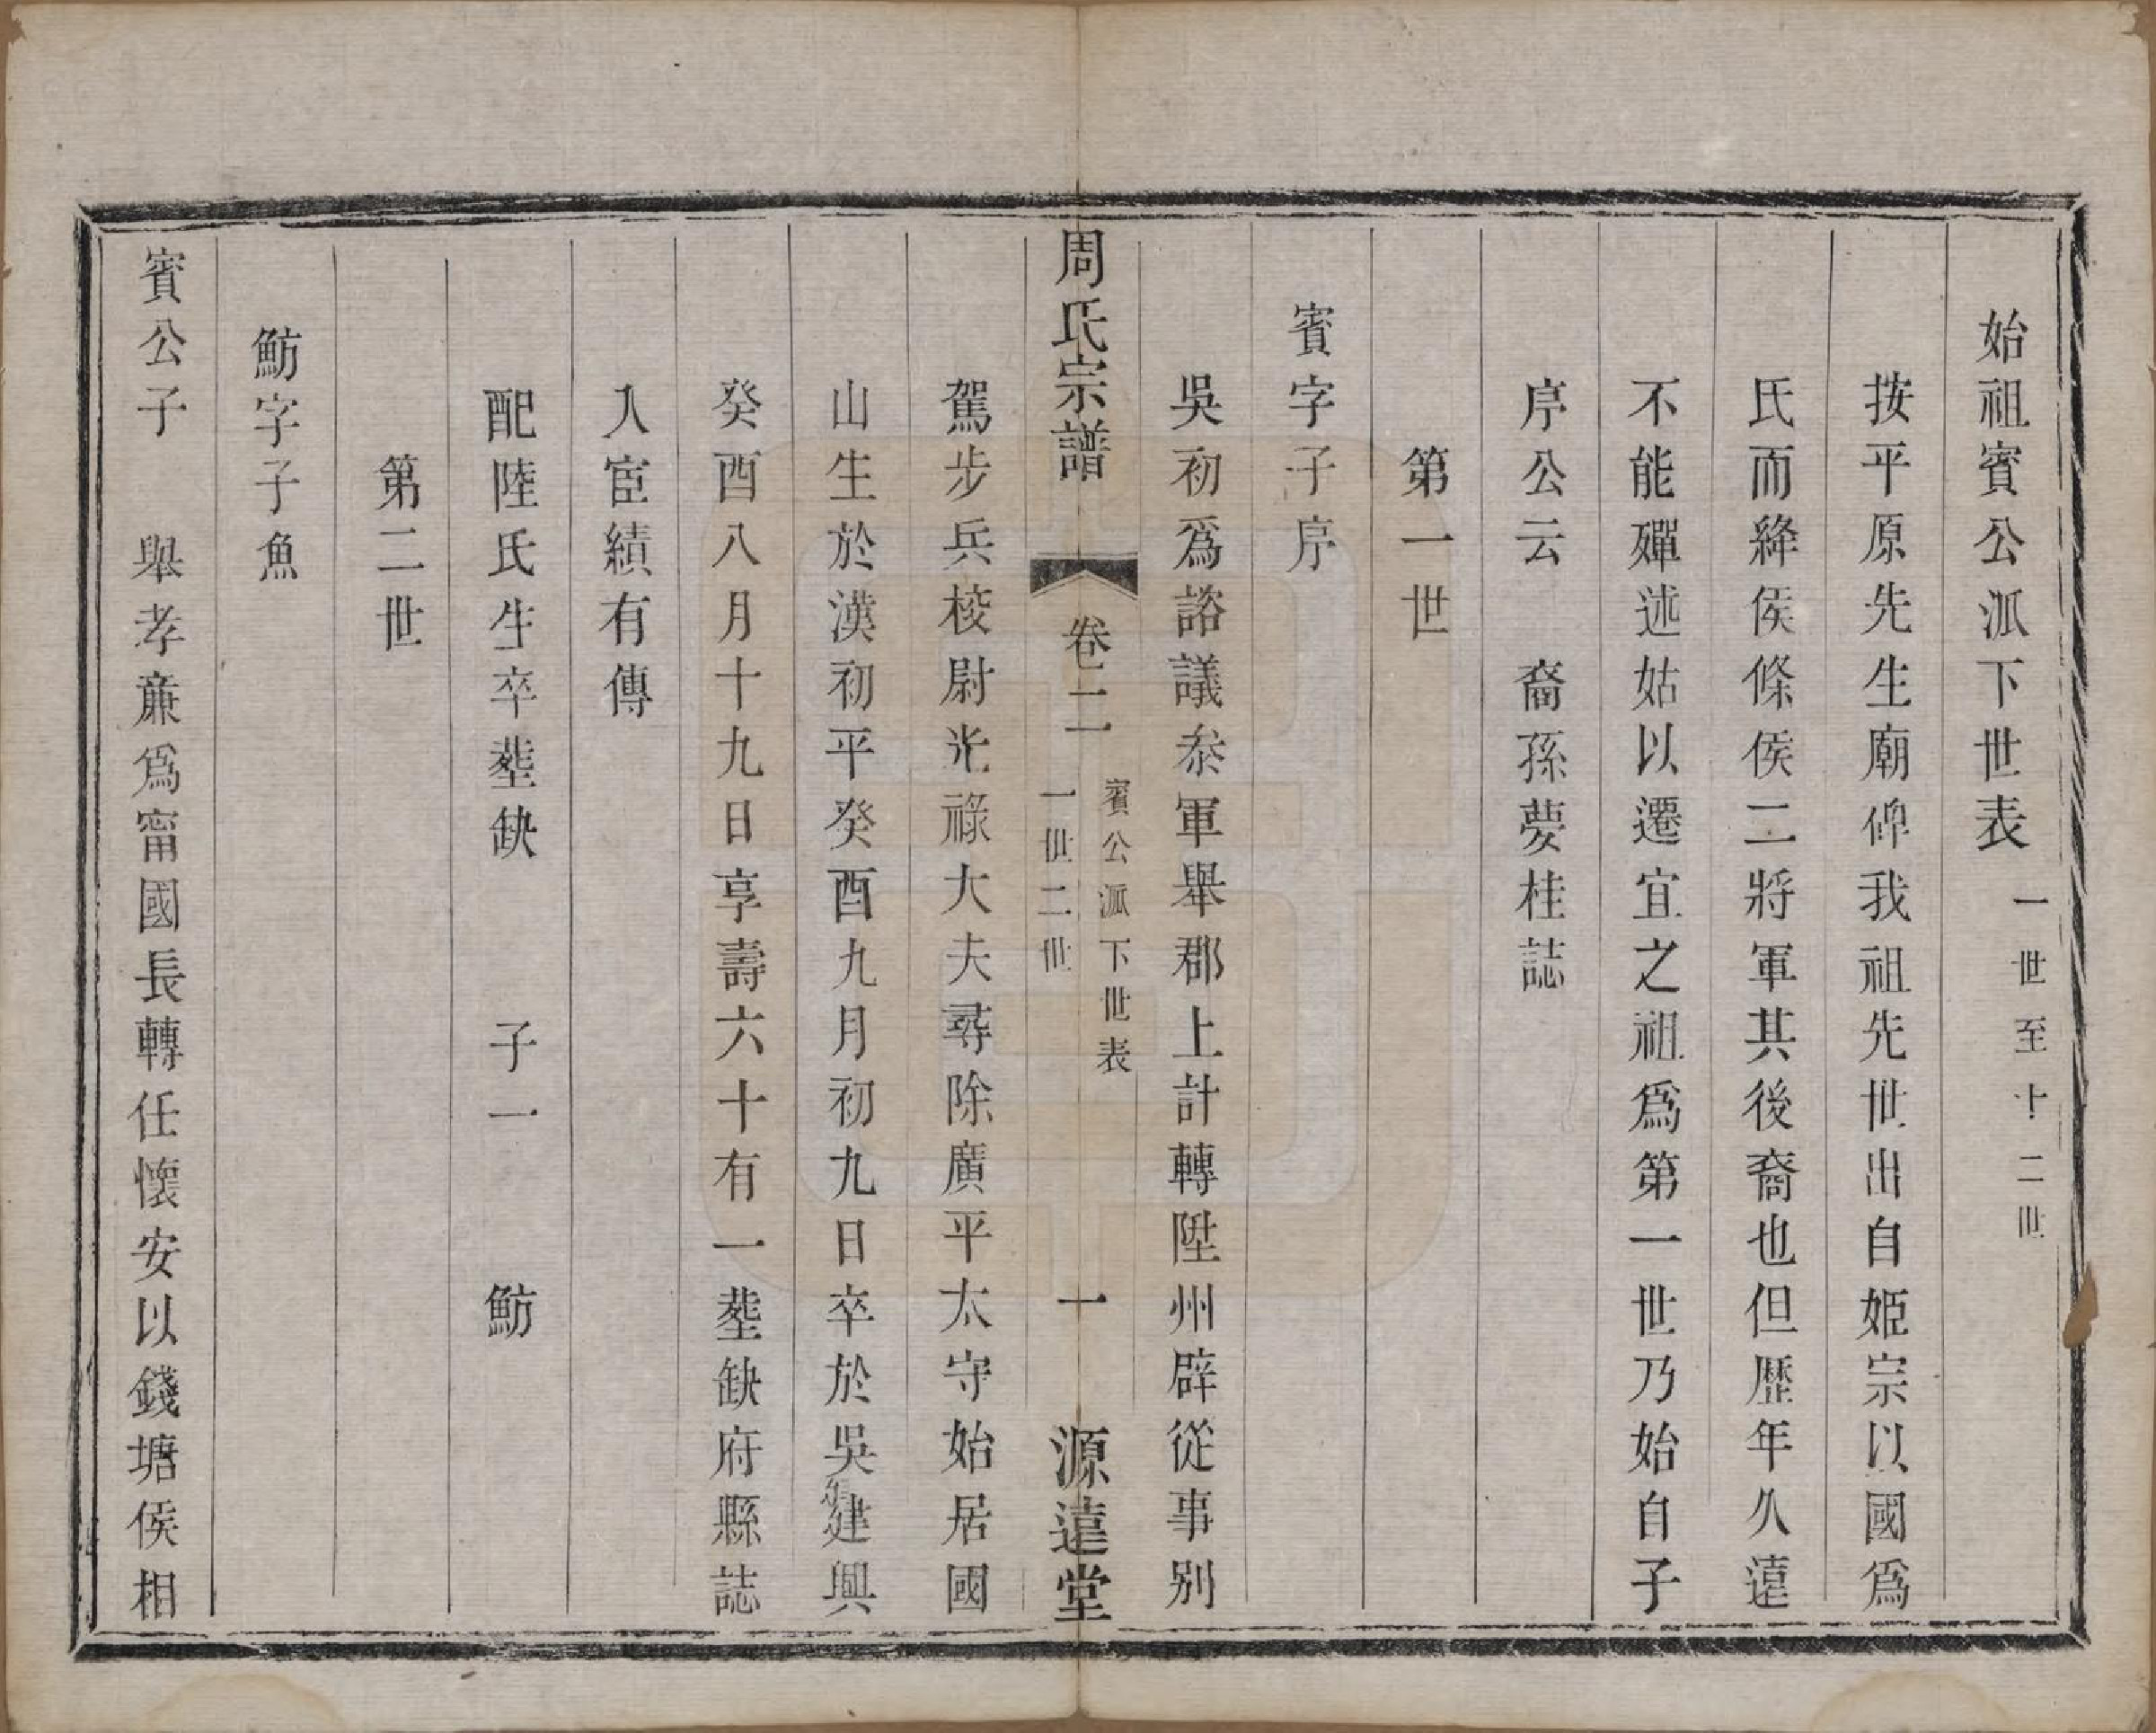 始祖賓公派下世表 一世至十二世
按平原先生廟碑我祖先世出自姬宗以國爲
氏而絳侯條侯二將軍其後裔也但歷年久遠
不能殫述姑以遷宜之祖爲第一世乃始自子
序公云 裔孫夢桂誌
第一世
賓字子序
吳初爲諮議叅軍舉郡上計轉陞州辟從事別
周氏宗譜 卷二 賓公派下世表 一世二世 一 源遠堂
駕步兵校尉光祿大夫尋除廣平太守始居國
山生於漢初平癸酉九月初九日卒於吳建興
癸酉八月十九日享壽六十有一塟缺府縣誌
入宦績有傳
配陸氏生卒塟缺 子一 魴
第二世
魴字子魚
賓公子 舉孝廉爲甯國長轉任懷安以錢塘侯相